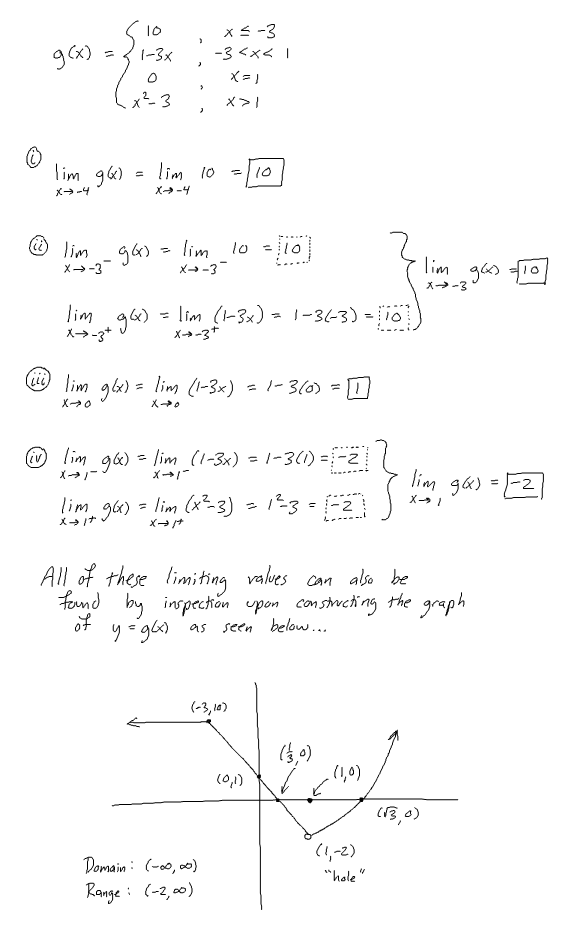 g(x) = { 10 , x ≤ -3
1-3x , -3 < x < 1
0 , x = 1
x²-3 , x > 1
(i) lim x→-4 g(x) = lim x→-4 10 = 10
(ii) lim x→-3⁻ g(x) = lim x→-3⁻ 10 = 10
lim x→-3⁺ g(x) = lim x→-3⁺ (1-3x) = 1-3(-3) = 10
} lim x→-3 g(x) = 10
(iii) lim x→0 g(x) = lim x→0 (1-3x) = 1-3(0) = 1
(iv) lim x→1⁻ g(x) = lim x→1⁻ (1-3x) = 1-3(1) = -2
lim x→1⁺ g(x) = lim x→1⁺ (x²-3) = 1²-3 = -2
} lim x→1 g(x) = -2
All of these limiting values can also be
found by inspection upon constructing the graph
of y = g(x) as seen below...
(-3,10)
(1/3, 0)
(0,1)
(1,0)
(√3, 0)
(1,-2)
"hole"
Domain: (-∞, ∞)
Range: (-2, ∞)